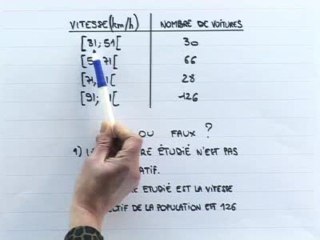 VITESSE (km/h) NOMBRE DE VOITURES
[31; 51[ 30
[5 71[ 66
[71; 1[ 28
[91; 1[ 126
OU FAUX ?
1) L RE ÉTUDIÉ N'EST PAS
ATIF.
RE ÉTUDIÉ EST LA VITESSE
CTIF DE LA POPULATION EST 126